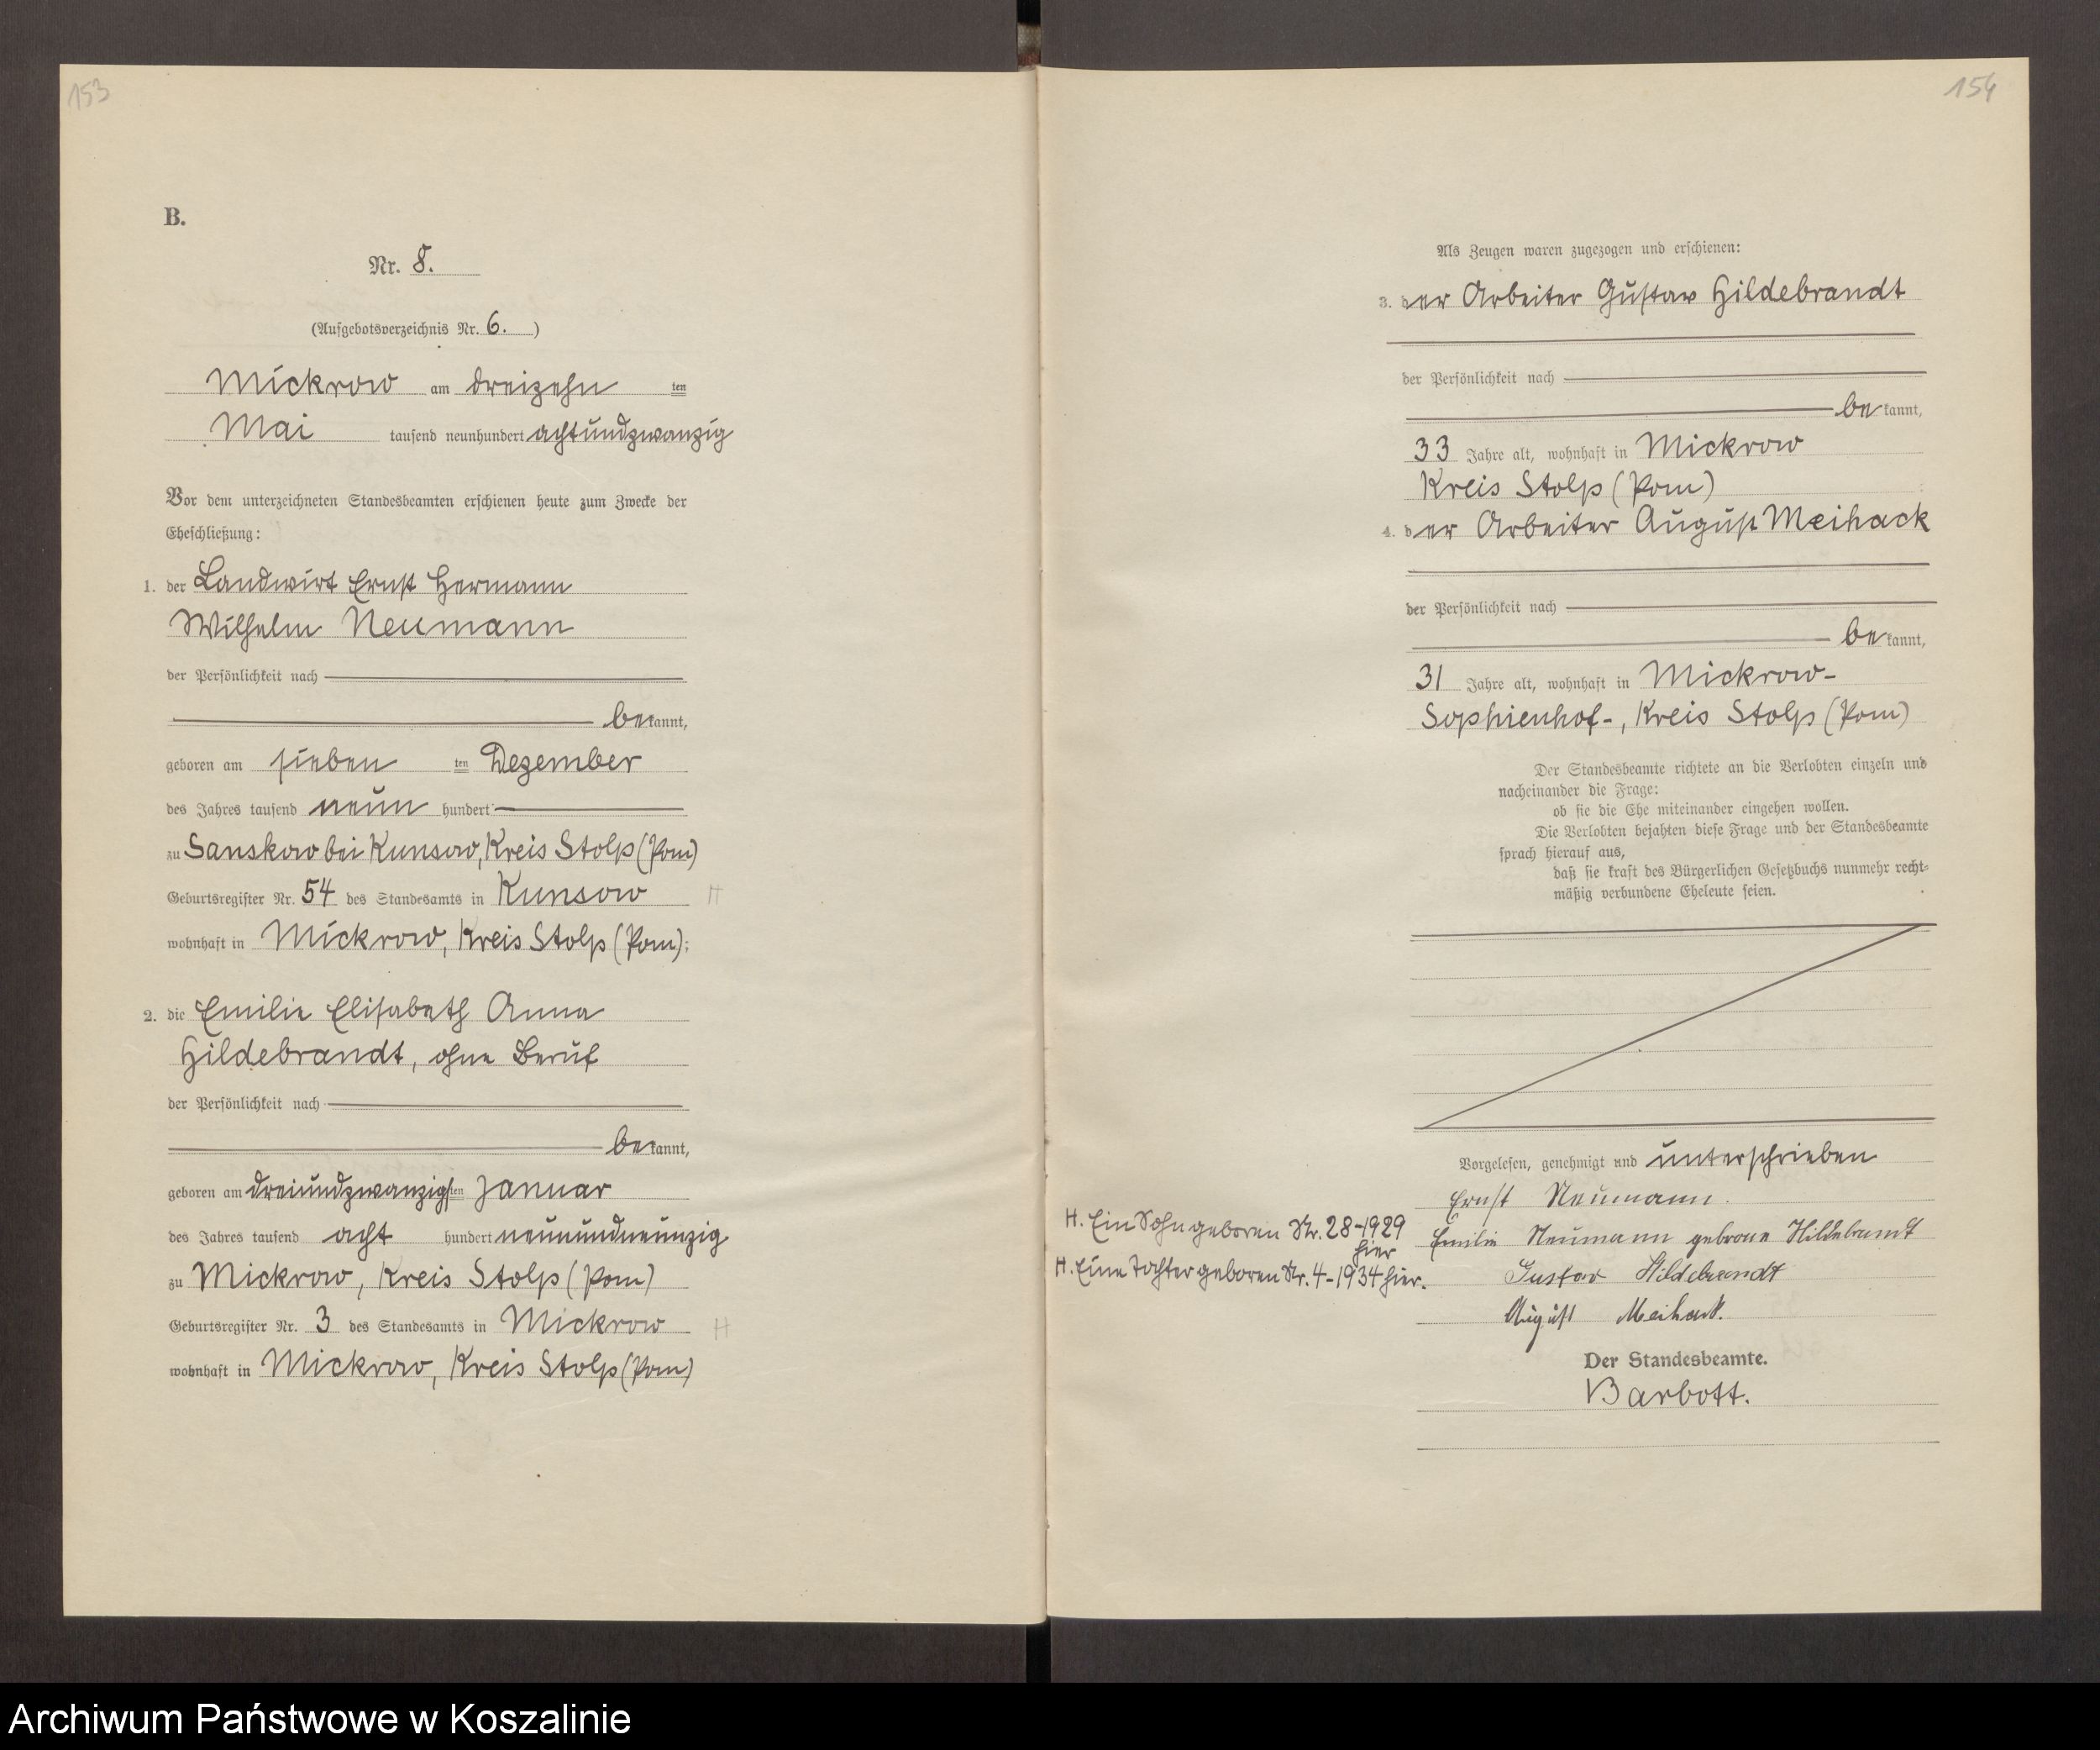 153
B.
Nr. 8.
(Aufgebotsverzeichnis Nr. 6. )
Mickrow am dreizehn ten
Mai tausend neunhundert achtundzwanzig
Vor dem unterzeichneten Standesbeamten erschienen heute zum Zwecke der
Eheschließung:
1. der Landwirt Ernst Hermann
Wilhelm Neumann
der Persönlichkeit nach
bekannt,
geboren am sieben ten Dezember
des Jahres tausend neun hundert
zu Sanskow bei Kunsow, Kreis Stolp (Pom)
Geburtsregister Nr. 54 des Standesamts in Kunsow H
wohnhaft in Mickrow, Kreis Stolp (Pom);
2. die Emilie Elisabeth Anna
Hildebrandt, ohne Beruf
der Persönlichkeit nach
bekannt,
geboren am dreiundzwanzigsten Januar
des Jahres tausend acht hundert neunundneunzig
zu Mickrow, Kreis Stolp (Pom)
Geburtsregister Nr. 3 des Standesamts in Mickrow H
wohnhaft in Mickrow, Kreis Stolp (Pom)
154
Als Zeugen waren zugezogen und erschienen:
3. der Arbeiter Gustav Hildebrandt
der Persönlichkeit nach
bekannt,
33 Jahre alt, wohnhaft in Mickrow
Kreis Stolp (Pom)
4. der Arbeiter August Meihack
der Persönlichkeit nach
bekannt,
31 Jahre alt, wohnhaft in Mickrow-
Sophienhof-, Kreis Stolp (Pom)
Der Standesbeamte richtete an die Verlobten einzeln und
nacheinander die Frage:
ob sie die Ehe miteinander eingehen wollen.
Die Verlobten bejahten diese Frage und der Standesbeamte
sprach hierauf aus,
daß sie kraft des Bürgerlichen Gesetzbuchs nunmehr recht-
mäßig verbundene Eheleute seien.
Vorgelesen, genehmigt und unterschrieben
Ernst Neumann.
H. Ein Sohn geboren Nr. 28-1929
hier
Emilie Neumann gebrone Hildebrandt
H. Eine Tochter geboren Nr. 4-1934 hier.
Gustav Hildebrandt
August Meihack.
Der Standesbeamte.
Barbott.
Archiwum Państwowe w Koszalinie